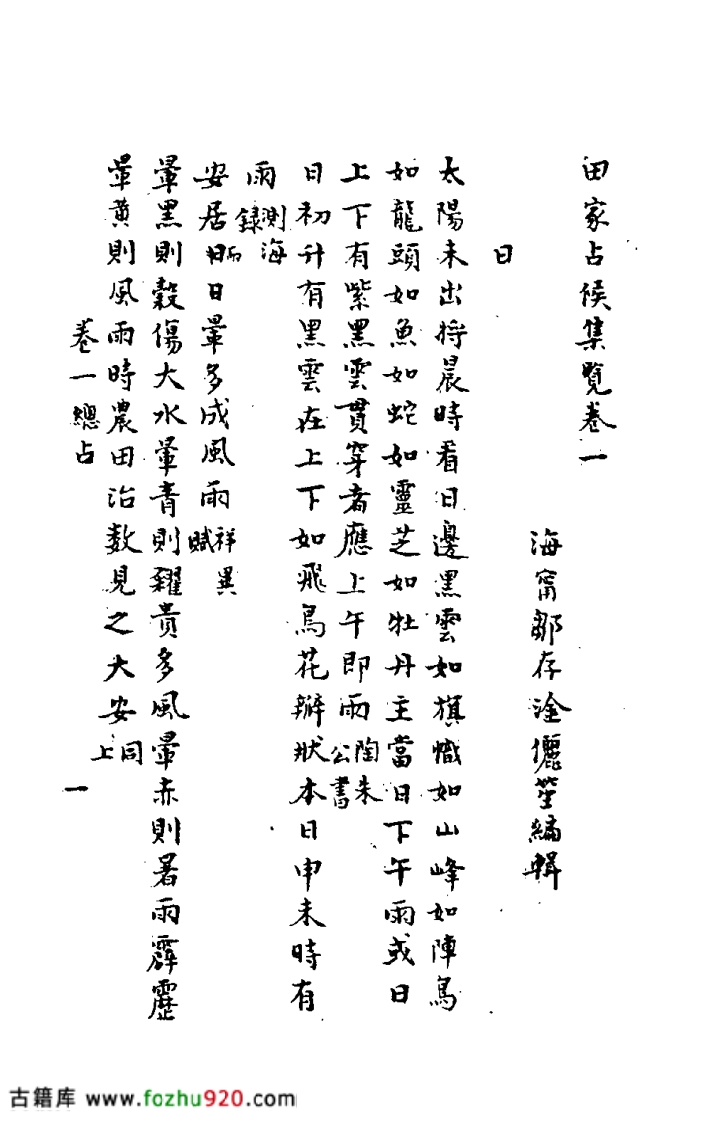 田家占候集覽卷一
海甯鄒存淦儷笙編輯
日
太陽未出將晨時看日邊黑雲如旗幟如山峰如陣鳥
如龍頭如魚如蛇如靈芝如牡丹主當日下午雨或日
上下有紫黑雲貫穿者應上午即雨陶朱公書
日初升有黑雲在上下如飛鳥花瓣狀本日申未時有
雨測海錄
安居而日暈多成風雨祥異賦
暈黑則穀傷大水暈青則糴貴多風暈赤則暑雨霹靂
暈黃則風雨時農田治數見之大安同上
卷一總占
一
古籍库 www.fozhu920.com